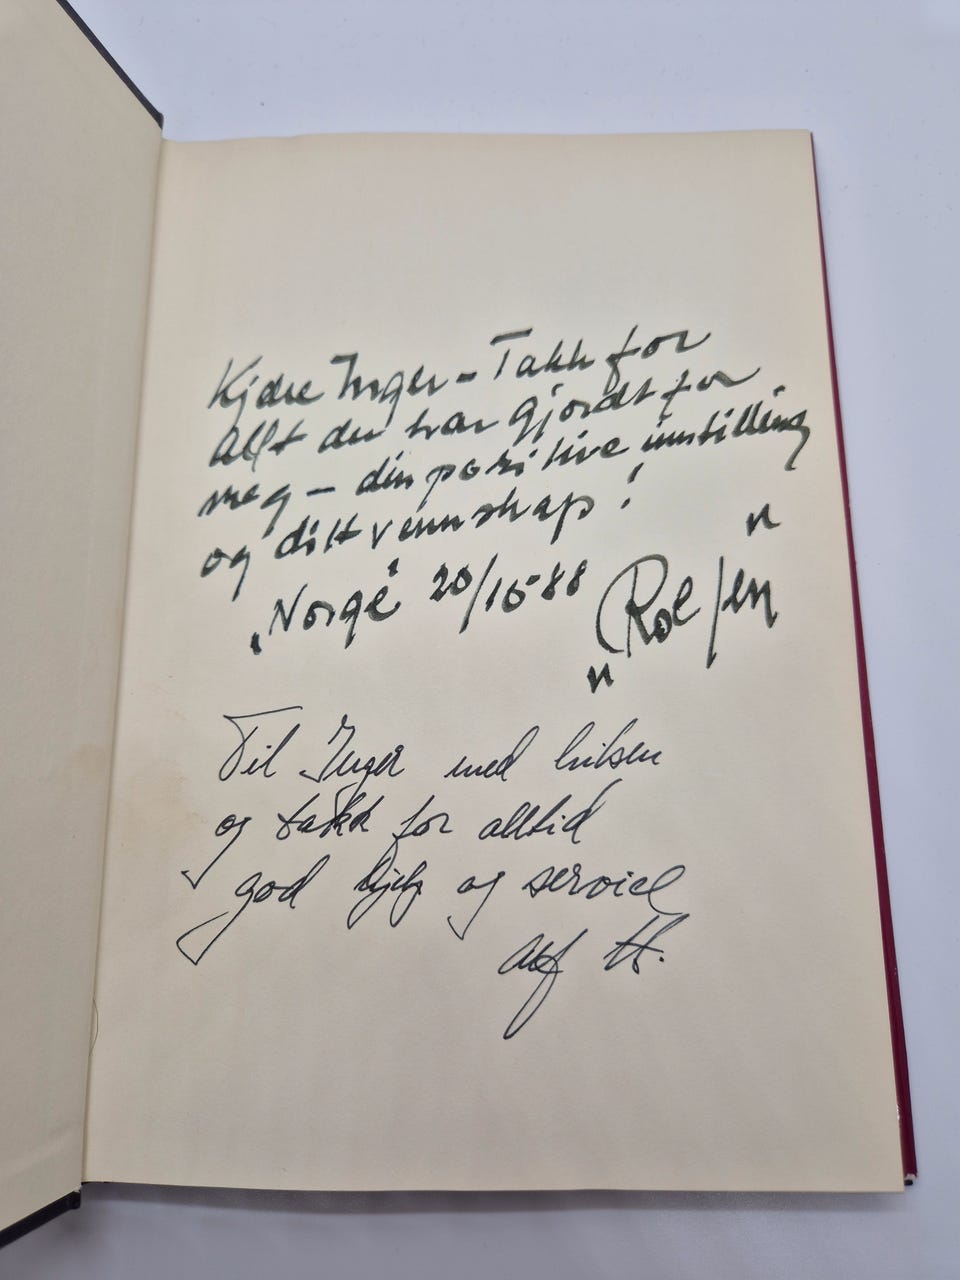 Kjære Inger - Takk for
Alt du har gjordt for
meg - din positive innstilling
og ditt vennskap!
"Norge" 20/10-88 "Rolfen"
Til Inger med hilsen
og takk for alltid
god hjelp og service
Alf H.